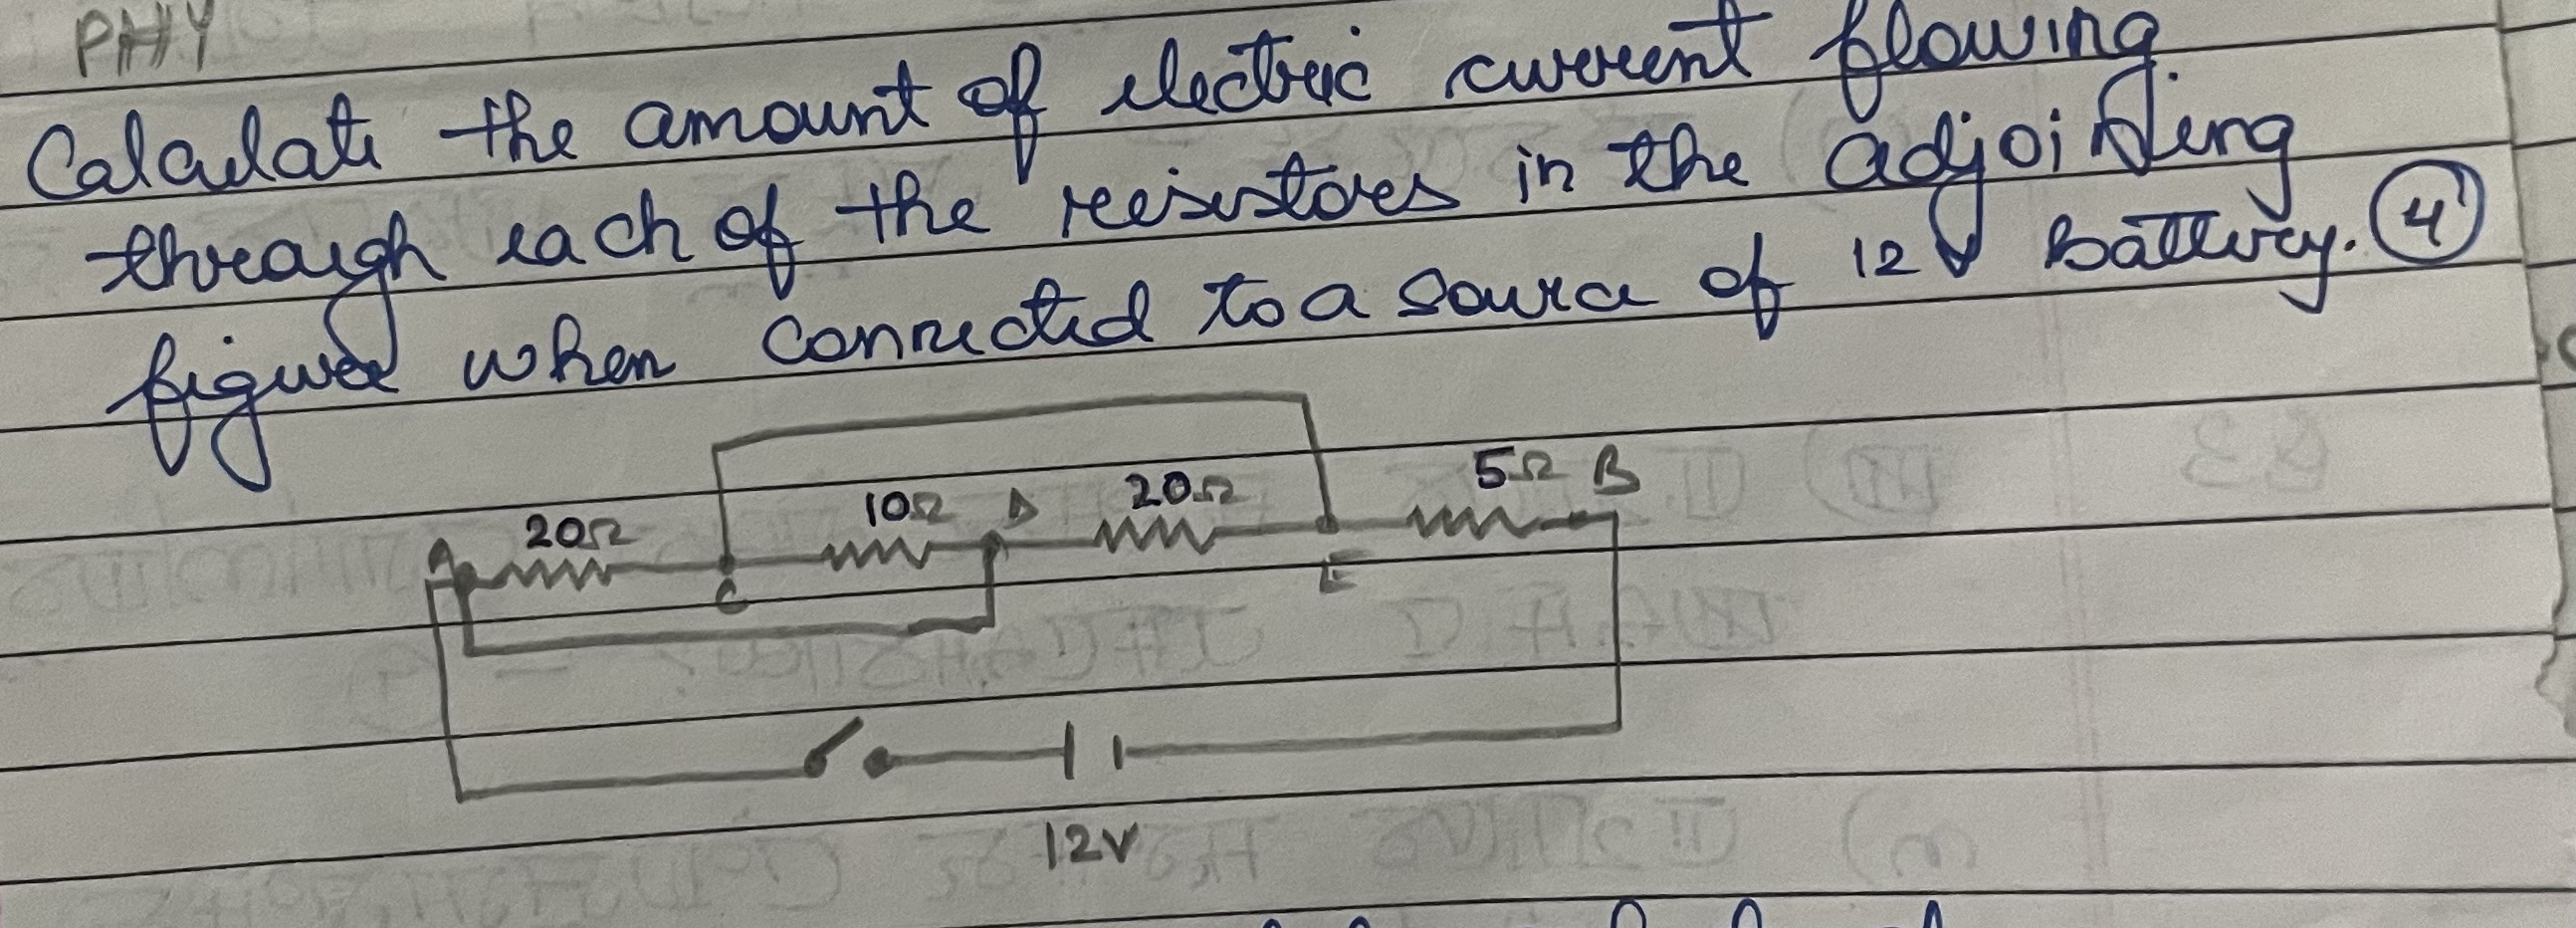 PHY
Calculate the amount of electric current flowing
through each of the resistores in the adjoining
figure when connected to a source of 12 V Battery. (4)
20Ω 10Ω D 20Ω 5Ω B
A C E
12V